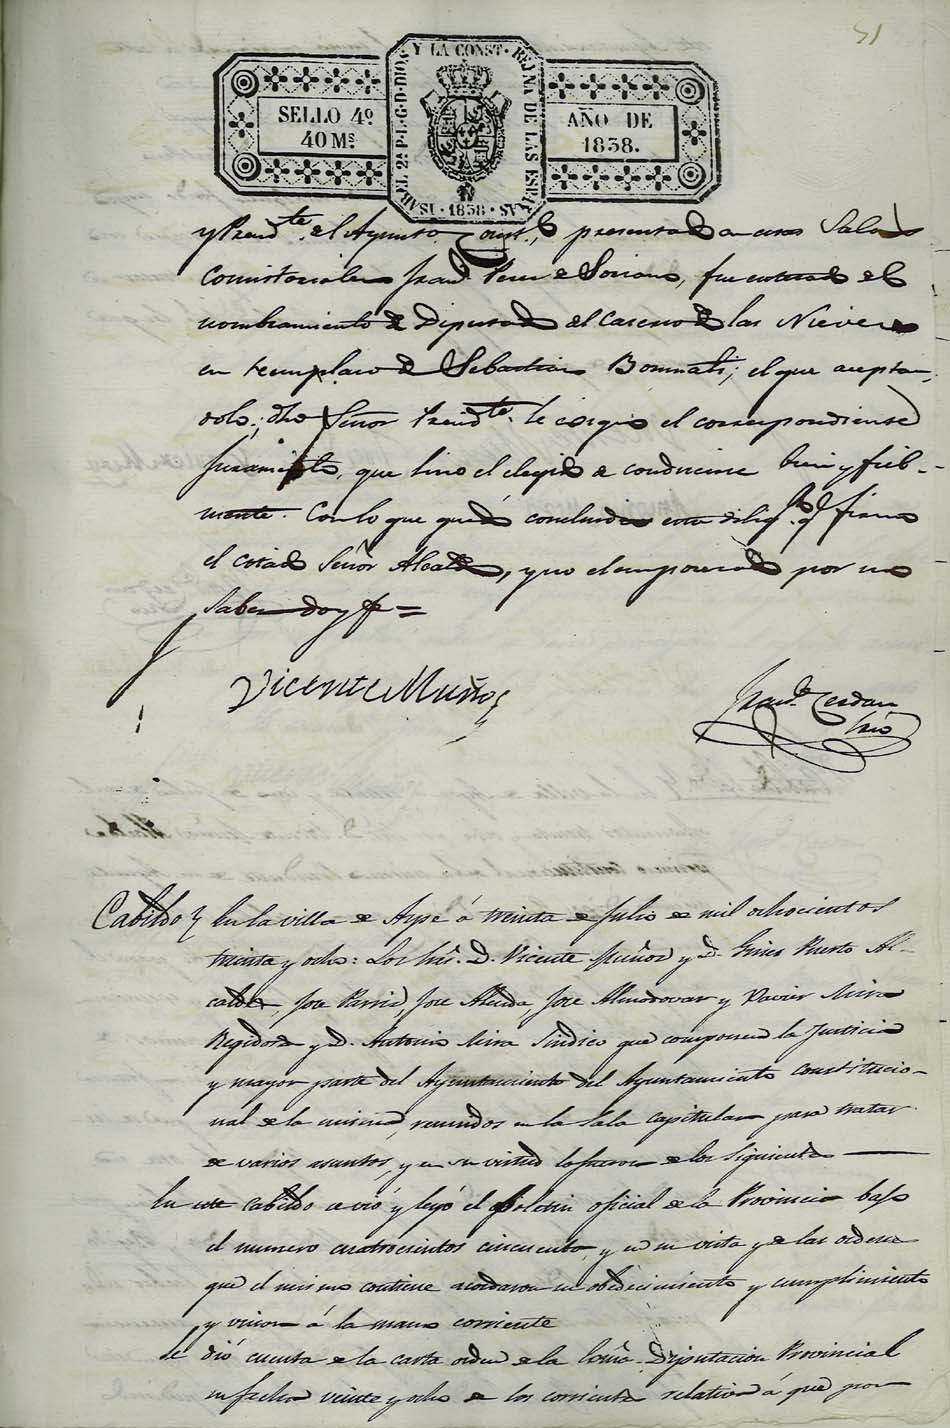 51
SELLO 4º
40 Ms.
ISABEL 2ª P. L. G. D. DIOS Y LA CONST. REJNA DE LAS ESPAÑAS · 1838 ·
AÑO DE
1838.
y Presidte. del Ayunto. Const.l, presentado en estas Salas
Consistoriales Franco. Perez de Soriano, fue enterado del
nombramiento de Diputado del Caserio de las Nieves
en reemplazo de Sebastian Bonmati; el que aceptan-
dolo; dho Señor Presidte. le exigió el correspondiente
Juramento, que hizo el elegido de conducirse bien y fiel-
mente. Con lo que quedó concluida esta diliga. qe. firma
el citado Señor Alcalde, y no el emposesionado por no
saber doy fe =
Vicente Muños
Franco. Cerdan
Srio
Cabildo } En la villa de Aspe á treinta de Julio de mil ochocientos
treinta y ocho: Los Sres. D. Vicente Muñoz y D. Gines Puerto Al-
caldes, Jose Pavia, Jose Alenda, Jose Almodovar y Xavier Mira
Regidores y D. Antonio Mira Sindico que componen la Justicia
y mayor parte del Ayuntamiento del Ayuntamiento constitucio-
nal de la misma, reunidos en la Sala capitular para tratar
de varios asuntos, y en su virtud lo hicieron de los siguientes
En este cabildo se vió y leyó el Boletin oficial de la Provincia bajo
el numero cuatrocientos cincuenta, y en su vista y de las ordenes
que el mismo contiene acordaron su obedecimiento y cumplimiento
y union á la mano corriente
Se dió cuenta de la carta orden de la Exma. Diputacion Provincial
su fecha veinte y ocho de los corrientes relativa á que por